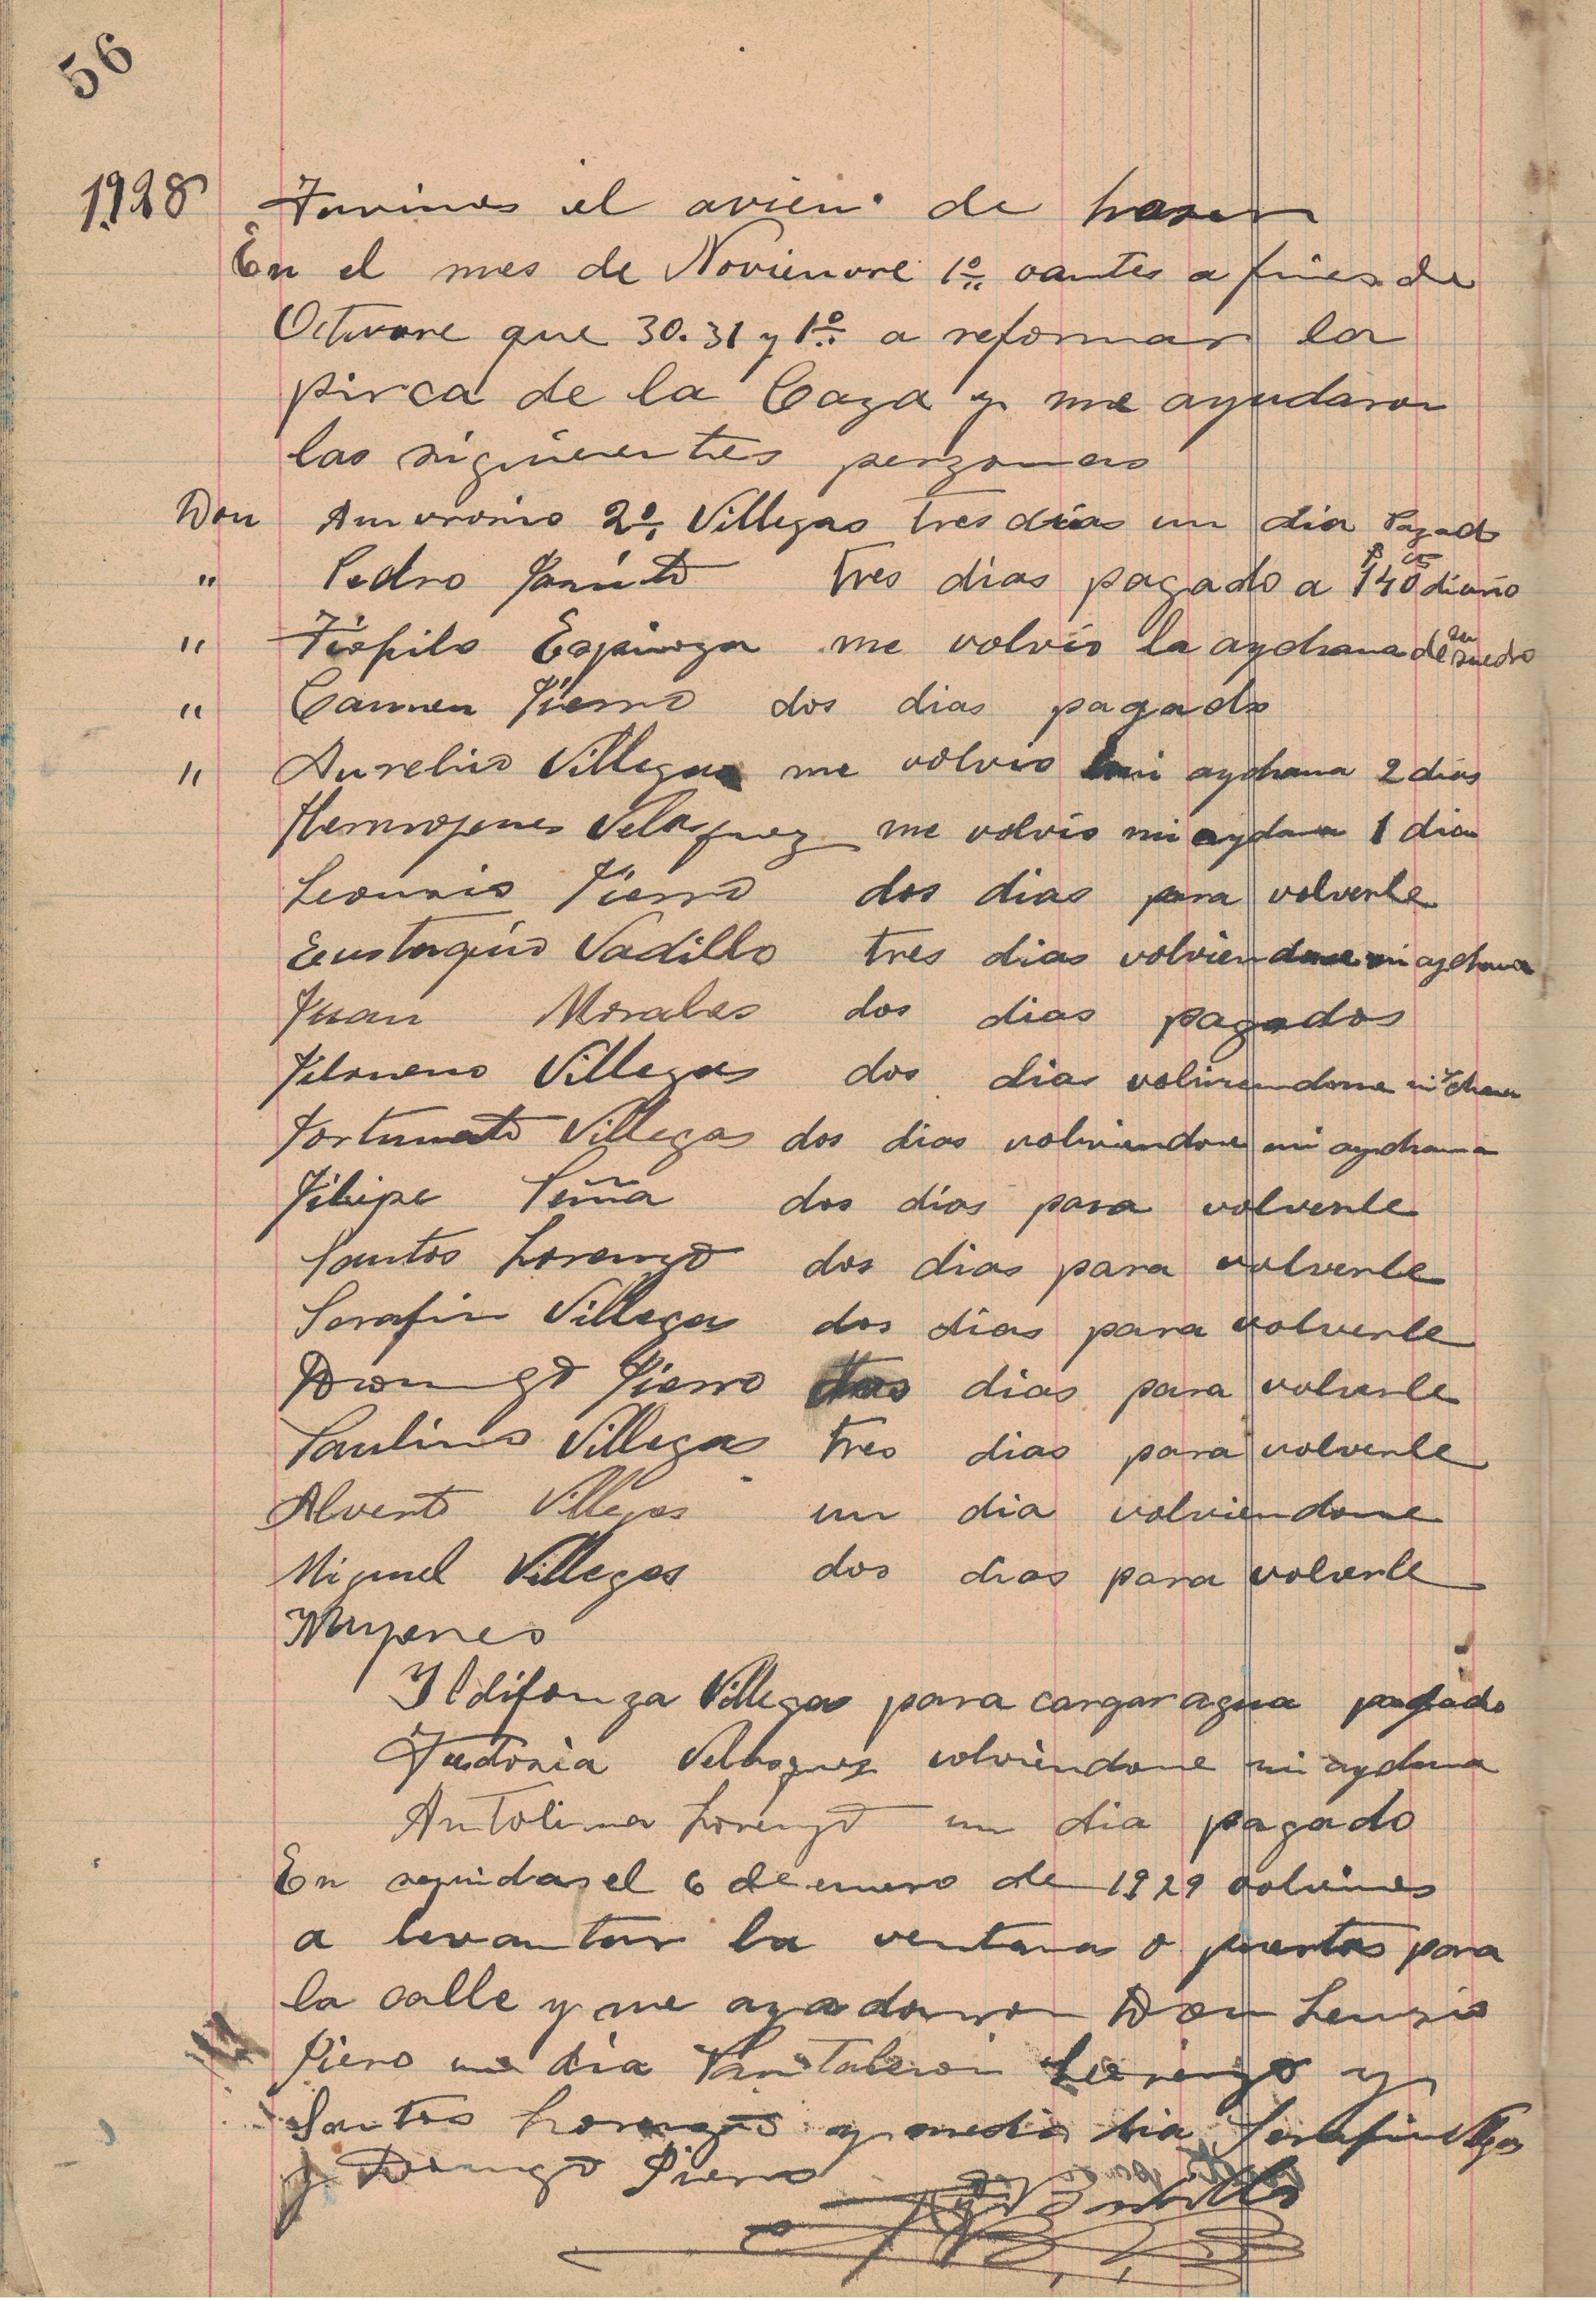 56
1928 Tuvimos el de haser
En el mes de Novienvre 1º oantes a fines de
Octuvre que 30. 31 y 1º a reformar la
pirca de la Caza y me ayudaron
las siguientes perzonas
Don Amvrosio 2º Villegas tres días un dia Pagado
" Pedro tres dias pagado a $140 cts diario
" Tiofilo Espinoza me volvio la aydiana de su suedro
" Carmen Pierro dos dias pagado
" Aurelio Villegas me volvio mi aydiana 2 dias
Hermojenes Velasquez me volvio mi aydana 1 dia
Leoncio Pierro dos dias para volverle
Eustaquio Vadillo tres dias volviendome mi aydiana
Juan Morales dos dias pagados
Filomeno Villegas dos dias volviendome mi
Fortunato Villegas dos dias volviendome mi aydiana
Filipe Peña dos dias para volverle
Santos Lorenzo dos dias para volverle
Serafin Villegas dos dias para volverle
Domingo Pierro dias para volverle
Paulino Villegas tres dias para volverle
Alverto Villegas un dia volviendome
Miguel Villegas dos dias para volverle
Mujeres
Ildifonza Villegas para cargar agua pagado
Velasquez volviendome mi aydana
Antolina Lorenzo un dia pagado
En seguidas el 6 de enero de 1929 volvimos
a levantar la ventana o puertas para
la calle y me ayadarron Don Lensio
Piero un dia Pantaleon Lorenzo y
Santos Lorenzo y medio dia Serafin Villegas
y Domingo Pierro